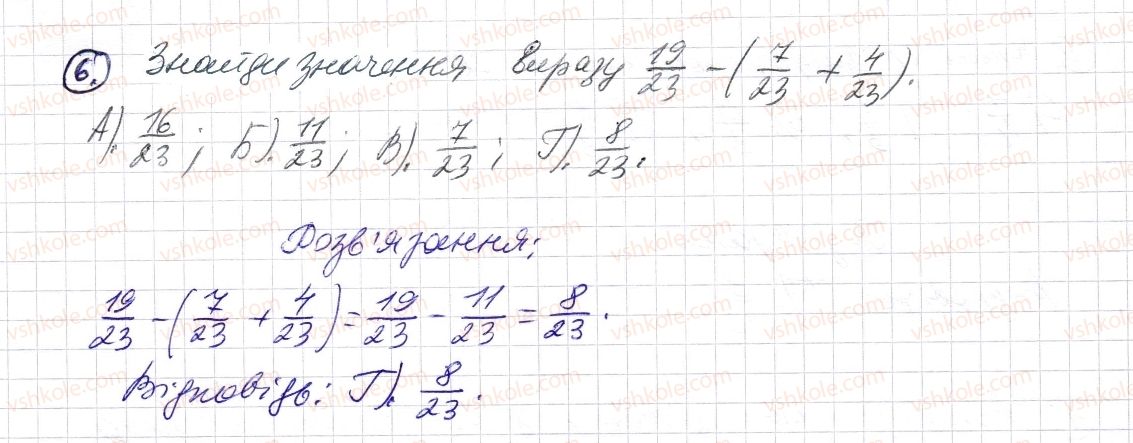 6. Знайди значення виразу 19/23 - (7/23 + 4/23).
А). 16/23; Б). 11/23; В). 7/23; Г). 8/23.
Розв'язання:
19/23 - (7/23 + 4/23) = 19/23 - 11/23 = 8/23.
Відповідь: Г). 8/23.